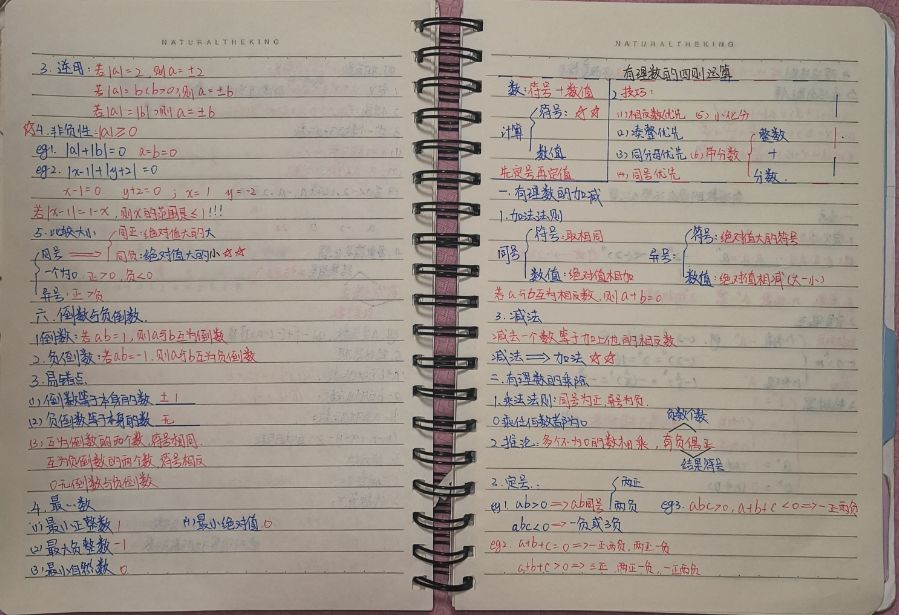 NATURALTHEKING
3. 逆用:若|a|=2,则a=±2
若|a|=b(b>0),则a=±b
若|a|=|b|,则a=±b
☆4.非负性:|a|≥0
eg1. |a|+|b|=0 a=b=0
eg2. |x-1|+|y+2|=0
x-1=0 y+2=0 ; x=1 y=-2
若|x-1|=1-x,则x的范围是≤1!!!
5.比较大小
同号 ⟹ 同正:绝对值大的大
同负:绝对值大的小☆☆
一个为0:正>0,负<0
异号:正>负
六.倒数与负倒数.
1倒数:若ab=1,则a与b互为倒数
2.负倒数:若ab=-1.则a与b互为负倒数
3.易错点
(1)倒数等于本身的数 ±1
(2)负倒数等于本身的数 无
(3)互为倒数的两个数,符号相同
互为负倒数的两个数 符号相反
0无倒数与负倒数
4.最~数
(1)最小正整数 1 (4)最小绝对值 0
(2)最大负整数 -1
(3)最小自然数 0
NATURALTHEKING
有理数的四则运算
数:符号+数值
计算
符号:☆☆
数值
先定号再定值
2技巧:
(1)相反数优先 (5)小化分
(2)凑整优先
(3)同分母优先 (6)带分数 整数
+
(4)同号优先 分数.
一.有理数的加减
1.加法法则
同号 符号:取相同
数值:绝对值相加
异号: 符号:绝对值大的符号
数值:绝对值相减(大-小)
若a与b互为相反数,则a+b=0
3.减法
减去一个数等于加上他的相反数
减法⟹加法☆☆
二.有理数的乘除
1.乘法法则:同号为正,异号为负.
0乘任何数都为0
负数个数
2推论:多个不为0的数相乘,奇负偶正
结果符号
2.定号..
eg1. ab>0⟹ab同号 两正
两负
eg3. abc>0, a+b+c<0⟹一正两负
abc<0⟹一负或3负
eg2. a+b+c=0⟹一正两负,两正一负
a+b+c>0⟹三正,两正一负,一正两负